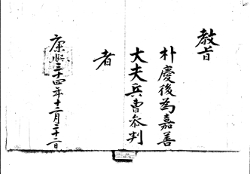 教旨
朴慶後為嘉善
大夫兵曹參判
者
康熙三十四年十二月二十二日